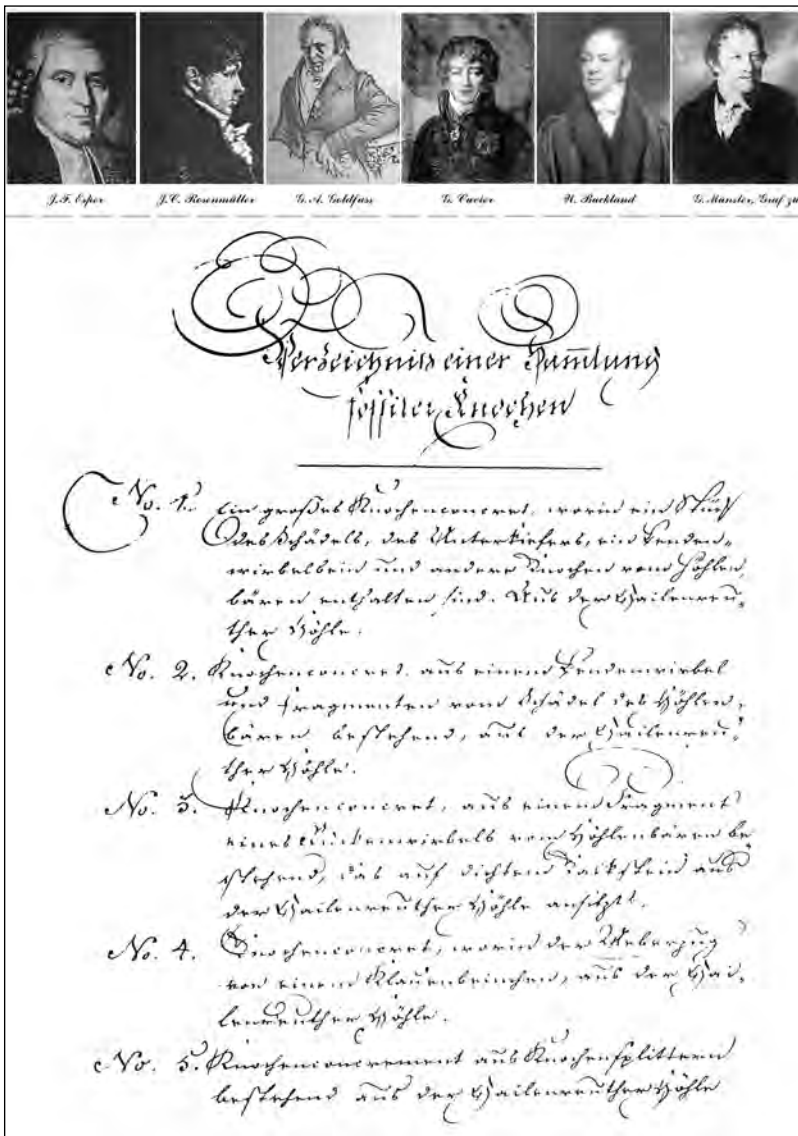 J. F. Esper J. C. Rosenmüller G. A. Goldfuss G. Cuvier W. Buckland G. Münster, Graf zu
Verzeichniss einer Sammlung
fossiler Knochen
No. 1. Ein großes Knochenconcret, worin ein Stück
des Schädels, des Unterkiefers, ein Lenden-
wirbelbein und andere Knochen vom Höhlen-
bären enthalten sind. Aus der Gailenreu-
ther Höhle.
No. 2. Knochenconcret, aus einem Lendenwirbel
und Fragmenten vom Schädel des Höhlen-
bären bestehend, aus der Gailenreu-
ther Höhle.
No. 3. Knochenconcret, aus einem Fragment
eines Rückenwirbels vom Höhlenbären be-
stehend, das auf dichtem Kalkstein aus
der Gailenreuther Höhle ansitzt.
No. 4. Knochenconcret, worin der Ueberzug
von einem Klauenbeinchen, aus der Gai-
lenreuther Höhle.
No. 5. Knochenconcrement aus Knochensplittern
bestehend aus der Gailenreuther Höhle